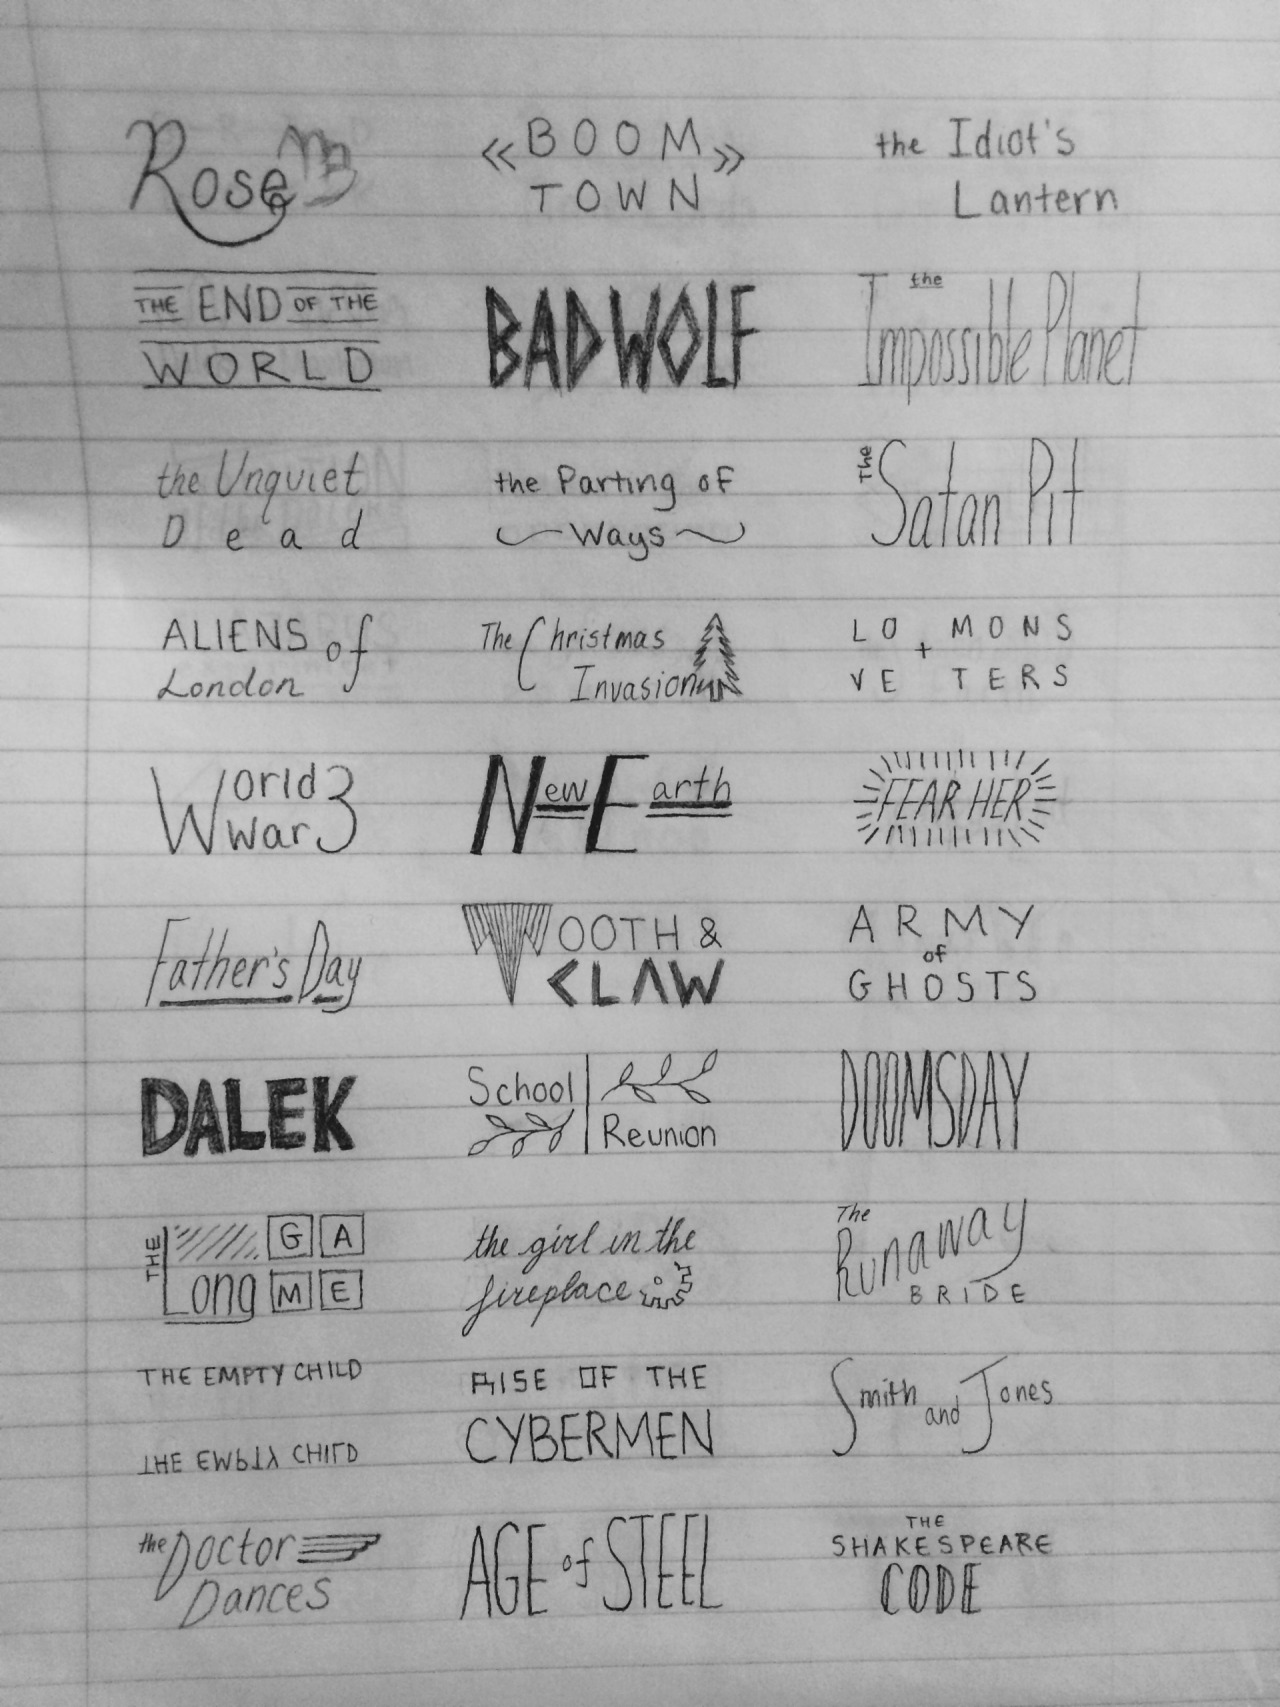 Rose
THE END OF THE
WORLD
the Unquiet
Dead
ALIENS of
London
World
War 3
Father's Day
DALEK
THE Long GAME
THE EMPTY CHILD
THE EMPTY CHILD
the Doctor
Dances
BOOM
TOWN
BAD WOLF
the Parting of
Ways
The Christmas
Invasion
New Earth
TOOTH &
CLAW
School
Reunion
the girl in the
fireplace
RISE OF THE
CYBERMEN
AGE of STEEL
the Idiot's
Lantern
the
Impossible Planet
The Satan Pit
LO + MONS
VE TERS
FEAR HER
ARMY
of
GHOSTS
DOOMSDAY
The
Runaway
BRIDE
Smith and Jones
THE
SHAKESPEARE
CODE